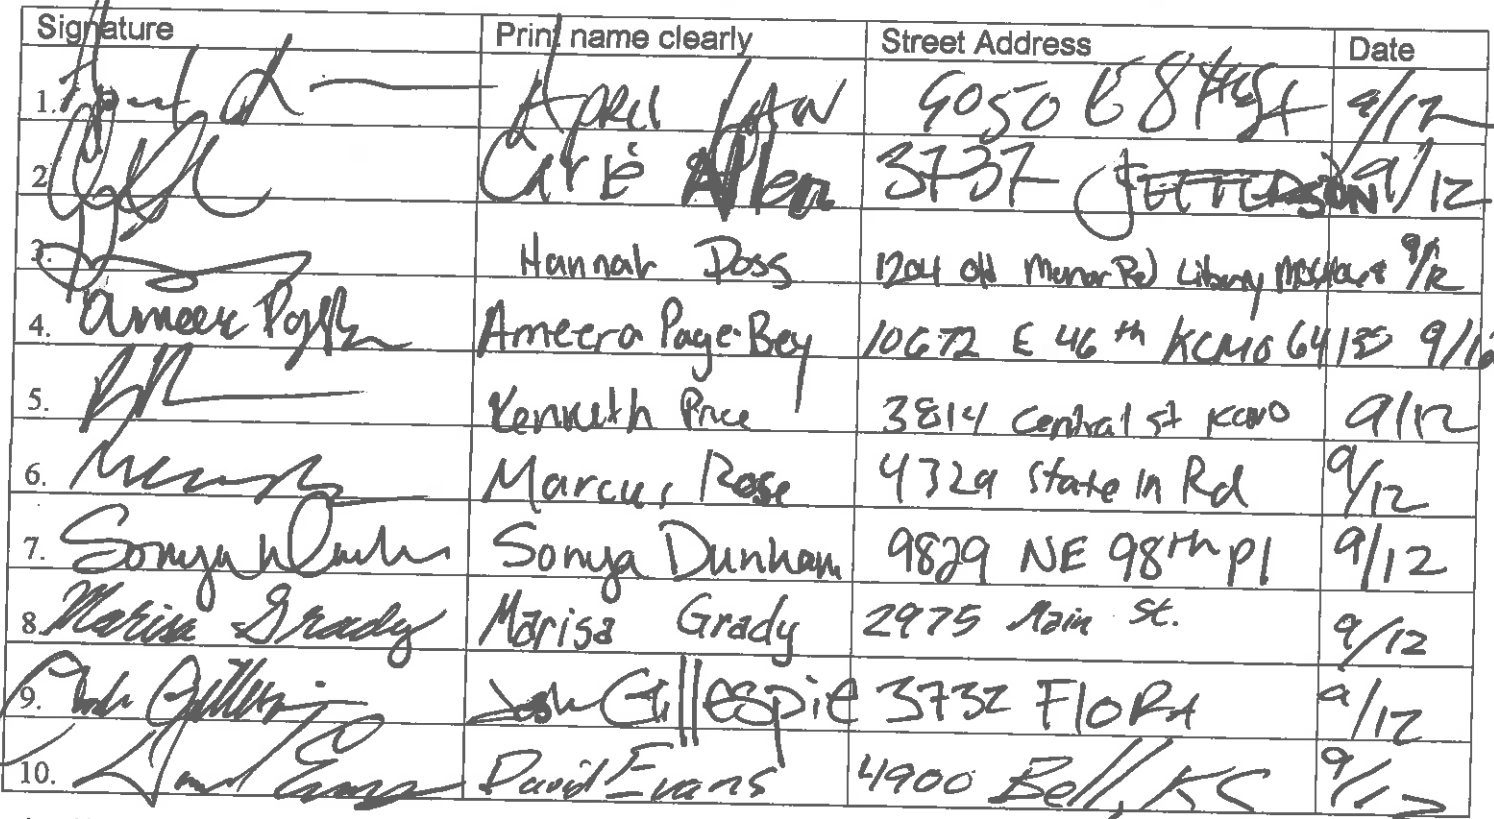 Signature Print name clearly Street Address Date
1. April 9050 E 84th St 9/12
2 Allen 3737 JEFFERSON 9/12
3. Hannah Doss 1204 Old Manor Rd Liberty 9/12
4. Ameera Page-Bey 10672 E 46th KCMO 64133 9/12
5. Kenneth Price 3814 Central St KCMO 9/12
6. Marcus Rose 4329 State ln Rd 9/12
7. Sonya Dunham Sonya Dunham 9829 NE 98th Pl 9/12
8. Marisa Grady Marisa Grady 2975 Main St. 9/12
9. Josh Gillespie Josh Gillespie 3732 FloRA 9/12
10. David Evans David Evans 4900 Bell, KC 9/12